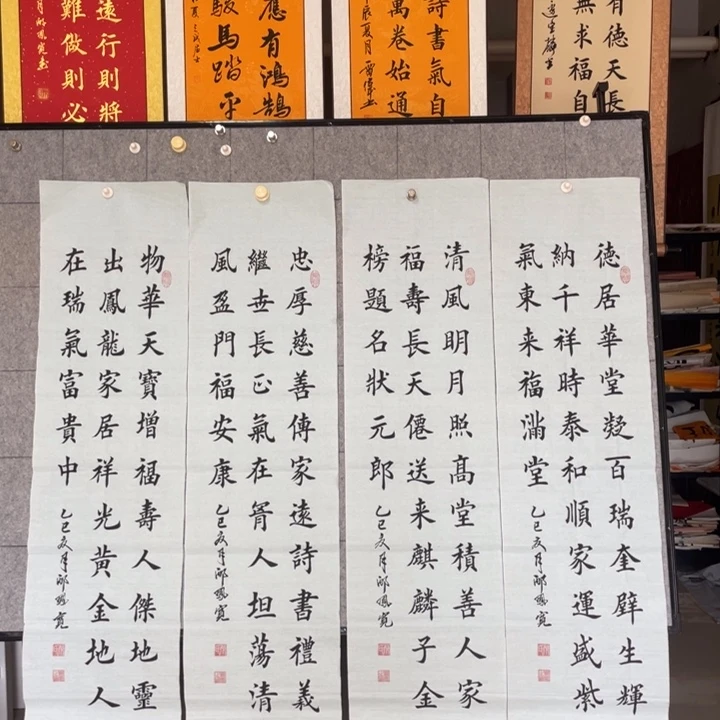 有德天長
無求福自
詩書氣自
萬卷始通
應有鴻鵠
駿馬踏平
遠行則將
難做則必
德居華堂凝百瑞奎壁生輝
納千祥時泰和順家運盛紫
氣東来福滿堂
乙巳夏月邴鳳寬
清風明月照高堂積善人家
福壽長天僊送来麒麟子金
榜題名狀元郎
乙巳夏月邴鳳寬
忠厚慈善傳家遠詩書禮義
繼世長正氣在胷人坦蕩清
風盈門福安康
乙巳夏月邴鳳寬
物華天寶增福壽人傑地靈
出鳳龍家居祥光黃金地人
在瑞氣富貴中
乙巳夏月邴鳳寬